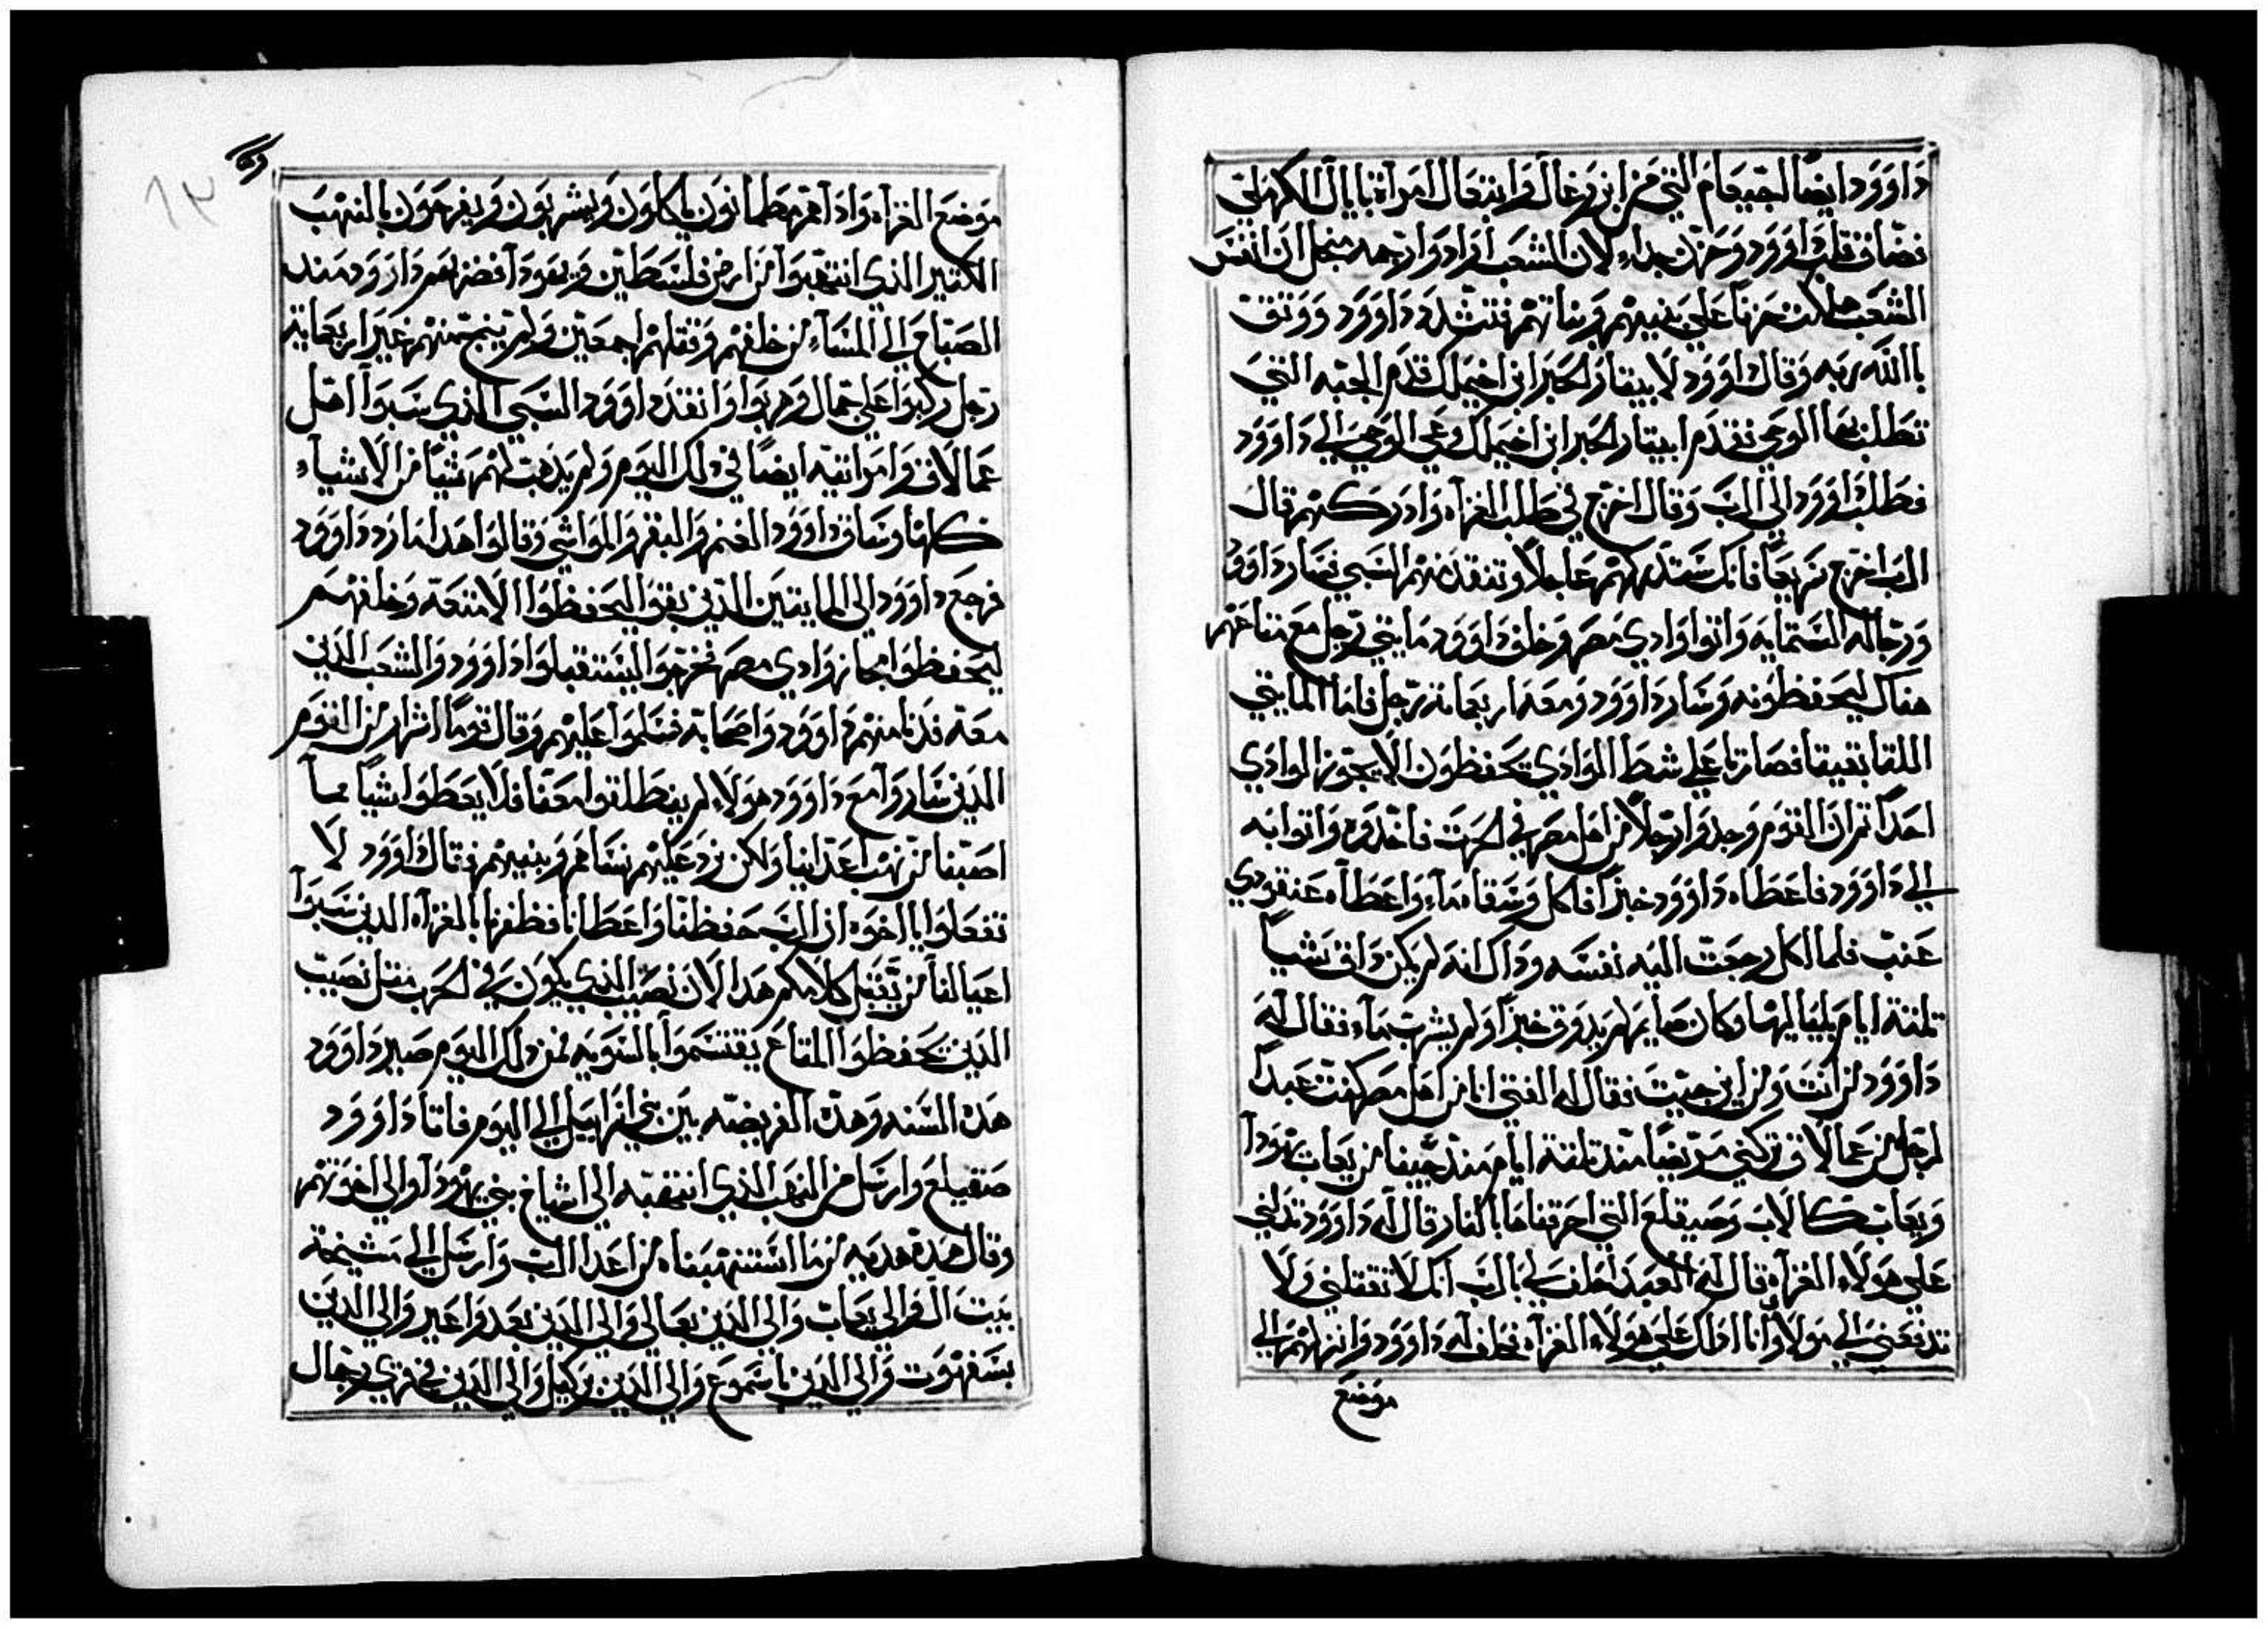 داوود ايضا اجيعام التي من ابن رغال وابتغال امراة نابال الكرملي
فضاق قلب داوود وحزن جداء لان الشعب ارادوا رجمه من اجل ان انفس
الشعب هلكت حزنا على بنيهم وبناتهم فتشدد داوود ووثق
باالله ربه وقال داوود لابيتار الحبر ابن اخيملك قدم الجبه التي
تطلب بها الوحي فقدم ابيتار الحبر ابن اخيملك وعي الوحي الي داوود
فطلب داوود الى الرب وقال اخرج في طلب الغزاه وادركهم قال
الرب اخرج سريعا فانك ستدركهم عاجلا وتنقذ منهم السبي فسار داوود
ورجاله الستمايه واتوا وادي مصر وخلف داوود مايتي رجل مع متاعهم
هناك ليحفظونه وسار داوود ومعه اربعماية رجل فاما المايتي
اللتا بقيتا فصارتا على شط الوادي يحفظون الا يجوز الوادي
احدا ثم ان القوم وجدوا رجلا من اهل مصر في الحرث فاخذوه واتوا به
الي داوود فاعطاه داوود خبزا فاكل وسقاه ماء واعطاه عنقودي
عنب فلما اكل رجعت اليه نفسه وذاك انه لم يكن ذاق شيا
ثلثة ايام بلياليها وكان صايم لم يذوق خبزا ولم يشرب ماء فقال له
داوود لمن انت ومن اين جيت فقال له الفتى انا من اهل مصر كنت عبدا
لرجل من عمالاق تركني مريضا منذ ثلثة ايام منذ جينا من يعاب يهودا
ويعاب كالاب وصيقلع التي احرقناها بالنار قال له داوود تدلني
على هولاء الغزاه قال له العبد احلف لي بالرب انك لا تقتلني ولا
تدفعني الي مولاي وانا ادلك علي هولاء الغزاه فحلف له داوود وانزلهم الي
موضع
موضع الغزاه واذا هم مطمانون ياكلون ويشربون ويفرحون بالنهب
الكثير الذي انتهبوا من ارض فلسطين ويهودا فضربهم داوود منذ
الصباح الى المساء من خلفهم وقتلهم اجمعين ولم ينج منهم غير اربعماية
رجل ركبوا على جمال وهربوا وانقذ داوود السبي الذي سبوا اهل
عمالاق وامراتيه ايضا في ذلك اليوم ولم يذهب لهم شيا من الاشياء
كلها وساق داوود الغنم والبقر والمواشي وقالوا هذا ما رد داوود
فرجع داوود الى المايتين الذين بقوا ليحفظوا الامتعه وخلفهم
ليحفظوا مجاز وادي مصر فخرجوا ليستقبلوا داوود والشعب الذين
معه فدنا منهم داوود واصحابه فسلموا عليهم وقال قوما اشرار من القوم
الذين ساروا مع داوود هولاء لم ينطلقوا معنا فلا يعطوا شيا مما
اصبنا من نهب اعداينا ولكن نرد عليهم نساهم وبنيهم فقال داوود لا
تفعلوا يا اخوه ان الرب حفظنا واعطانا فظفرنا بالغزاه الذين سبوا
اعيالنا من يقبل كلامكم هذا الان نصيب الذي يكون في الحرب مثل نصيب
الذين يحفظوا المتاع يقتسموا بالسويه فمن ذلك اليوم صير داوود
هذه السنه وهذه الفريضه بين بني اسراييل الي اليوم فاتا داوود
صقيلع وارسل من النهب الذي انتهبه الى اشياخ بني يهودا والى اخوتهم
وقال هذه هديه من ما استنهبناه من اعدا الرب وارسل الي مشيخة
بيت ال والي يعاب والى الذين بعالي والى الذين بعدواعير والي الذين
بسفهوت والى الذين باسموع والي الذين بركيل والى الذين في قري رجمال